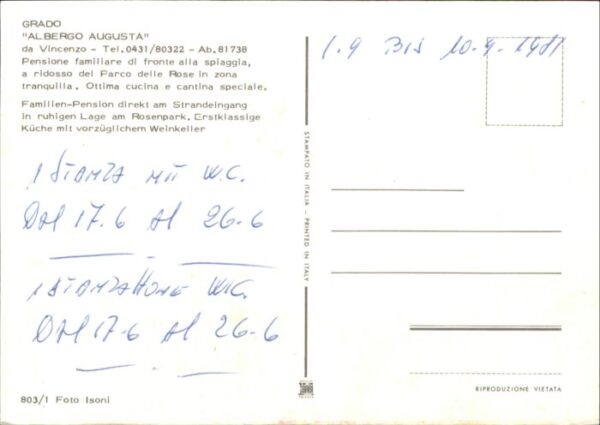 GRADO
"ALBERGO AUGUSTA"
da Vincenzo - Tel.0431/80322 - Ab.81738
Pensione familiare di fronte alla spiaggia,
a ridosso del Parco delle Rose in zona
tranquilla. Ottima cucina e cantina speciale.
Familien-Pension direkt am Strandeingang
in ruhigen Lage am Rosenpark. Erstklassige
Küche mit vorzüglichem Weinkeller
1 STANZA MIT W.C.
DAL 17.6 Al 26-6
1 STANZA HONE W.C.
DAL 17-6 Al 26-6
803/1 Foto Isoni
STAMPATO IN ITALIA - PRINTED IN ITALY
1.9 BIS 10-9-1981
RIPRODUZIONE VIETATA